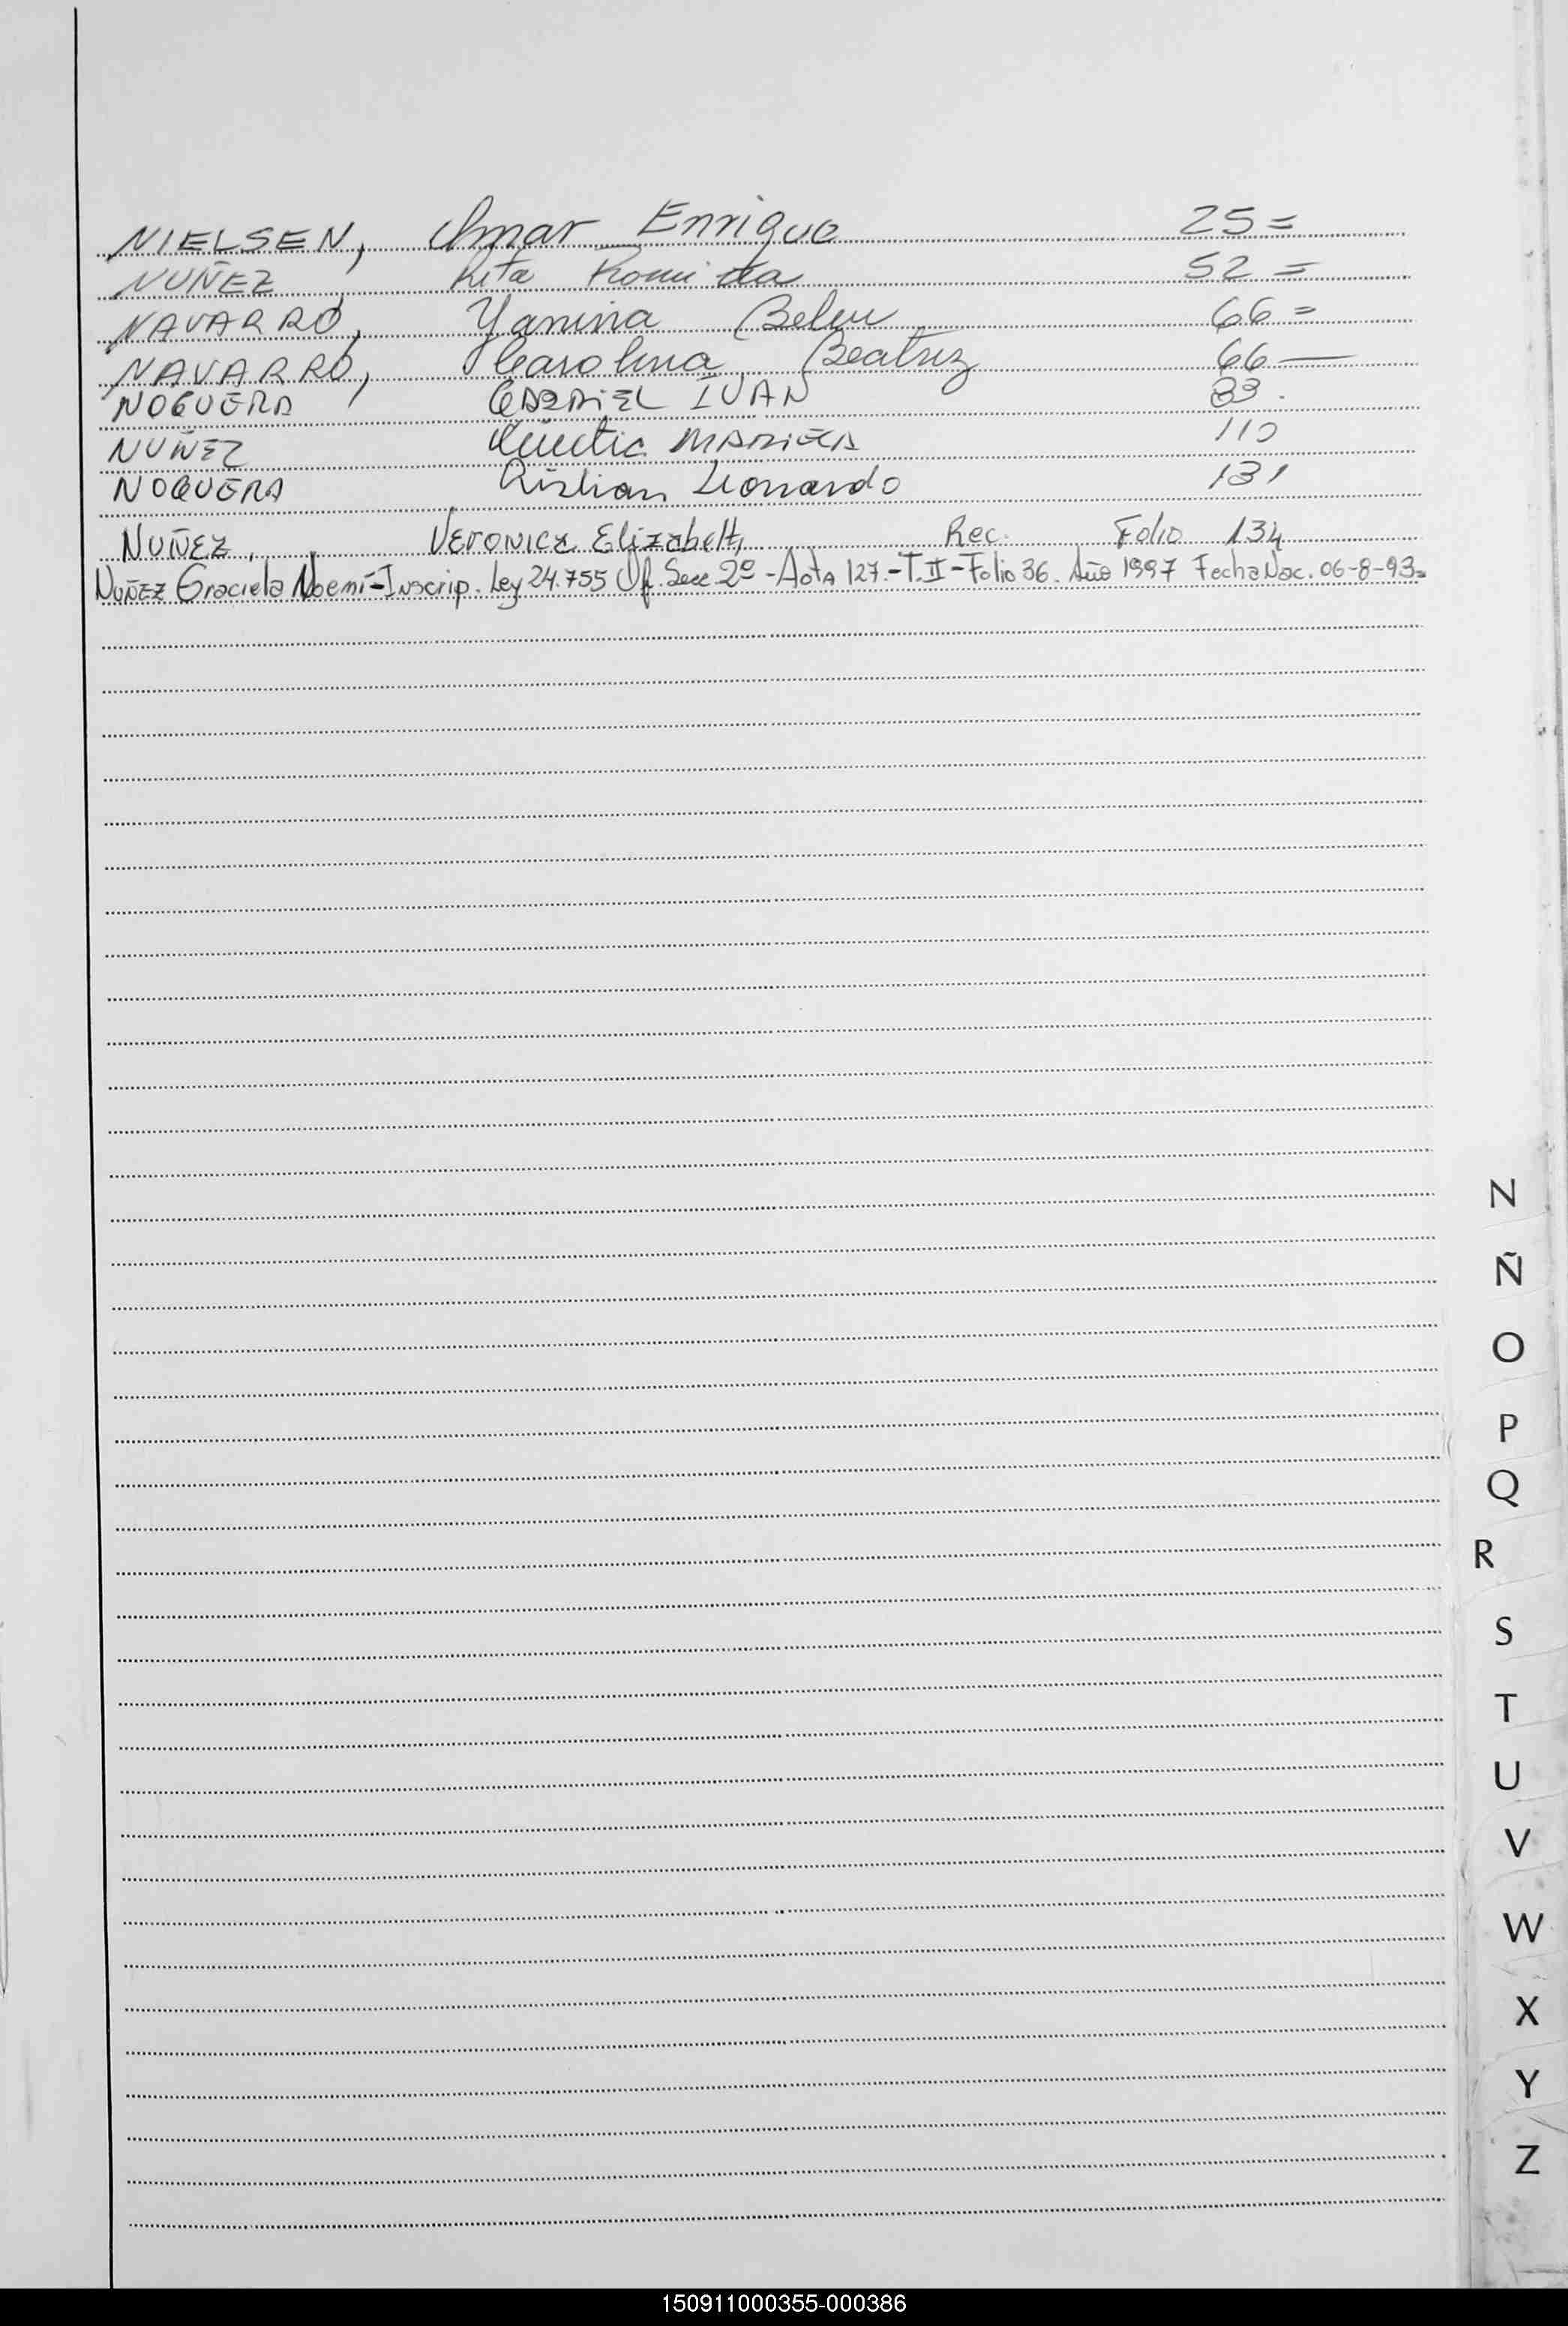 NIELSEN, Omar Enrique 25=
NUÑEZ Rita Romina 52=
NAVARRO, Yanina Belen 66=
NAVARRO, Carolina Beatriz 66—
NOGUERA GABRIEL IVAN 83.
NUÑEZ MARIELA 110
NOGUERA Cristian Leonardo 131
NUÑEZ, VERONICA Elizabeth, Rec. Folio 134
NUÑEZ Graciela Noemí-Inscrip. Ley 24.755 Of. Secc 2º-Acta 127.-T.II-Folio 36. Año 1997 Fecha Nac. 06-8-93=
N
Ñ
O
P
Q
R
S
T
U
V
W
X
Y
Z
150911000355-000386